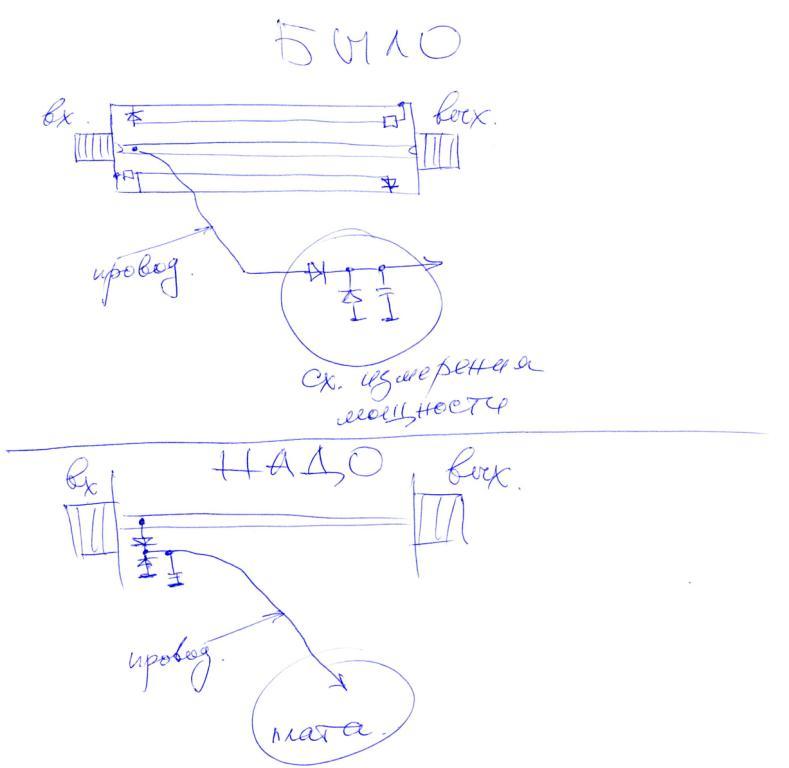 БЫЛО
вх. вых.
провод.
сх. измерения
мощности
НАДО
вх вых.
провод.
плата.